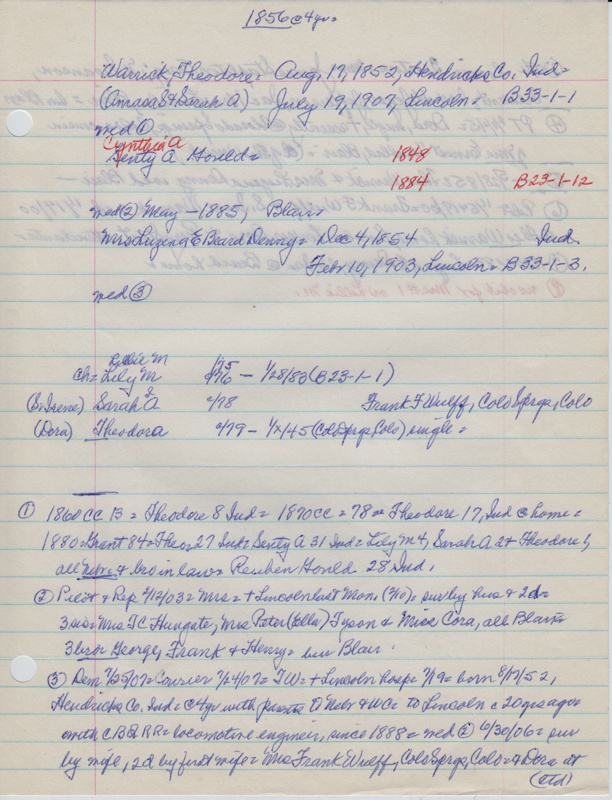 1856 @ 4yr=
Warrick, Theodore = Aug. 17, 1852, Hendricks Co. Ind=
(Amasa S & Sarah A) July 19, 1907, Lincoln = B33-1-1
md ①
Cynthia A
Senty A Gould = 1848
1884 B23-1-12
md ② May - 1885, Blair =
Mrs Luzena E Beard Denny = Dec 4, 1854 Ind
Feb 10, 1903, Lincoln = B33-1-3.
md ③
M
ch = Lily M 1/28/83 (B23-1-1)
(B. Irene) Sarah A c/78 Frank F Wulff, Colo Sprgs, Colo
(Dora) Theodora c/79 - (Colo Sprgs, Colo) single =
① 1860 CC B = Theodore 8 Ind = 1870 CC = 78 = Theodore 17, Ind @ home =
1880 = Grant 84 = Theo 27 Ind = Senty A 31 Ind = Lily M 4, Sarah A 2 + Theodore 1,
all Nebr & bro in law = Reuben Gould 28 Ind.
② Pilot & Rep 2/12/03 = Mrs = + Lincoln last Mon. (2/10) = sur by hus & 2d =
3 sis = Mrs TC Hungate, Mrs Peter (Ella) Tyson & Miss Cora, all Blair =
3 bros = George, Frank & Henry = bur Blair.
③ Dem 7/25/07 = Courier 7/24/07 = TW = + Lincoln hosp = 7/19 = born 8/17/52,
Hendricks Co. Ind = @ 4yr with to Nebr & WC = to Lincoln c 20 yrs ago
with CB&Q RR = locomotive engineer, since 1888 = md ② 6/30/06 = sur
by wife, 2d by first wife = Mrs Frank Wulff, Colo Sprgs, Colo = + Dora at
(ctd)